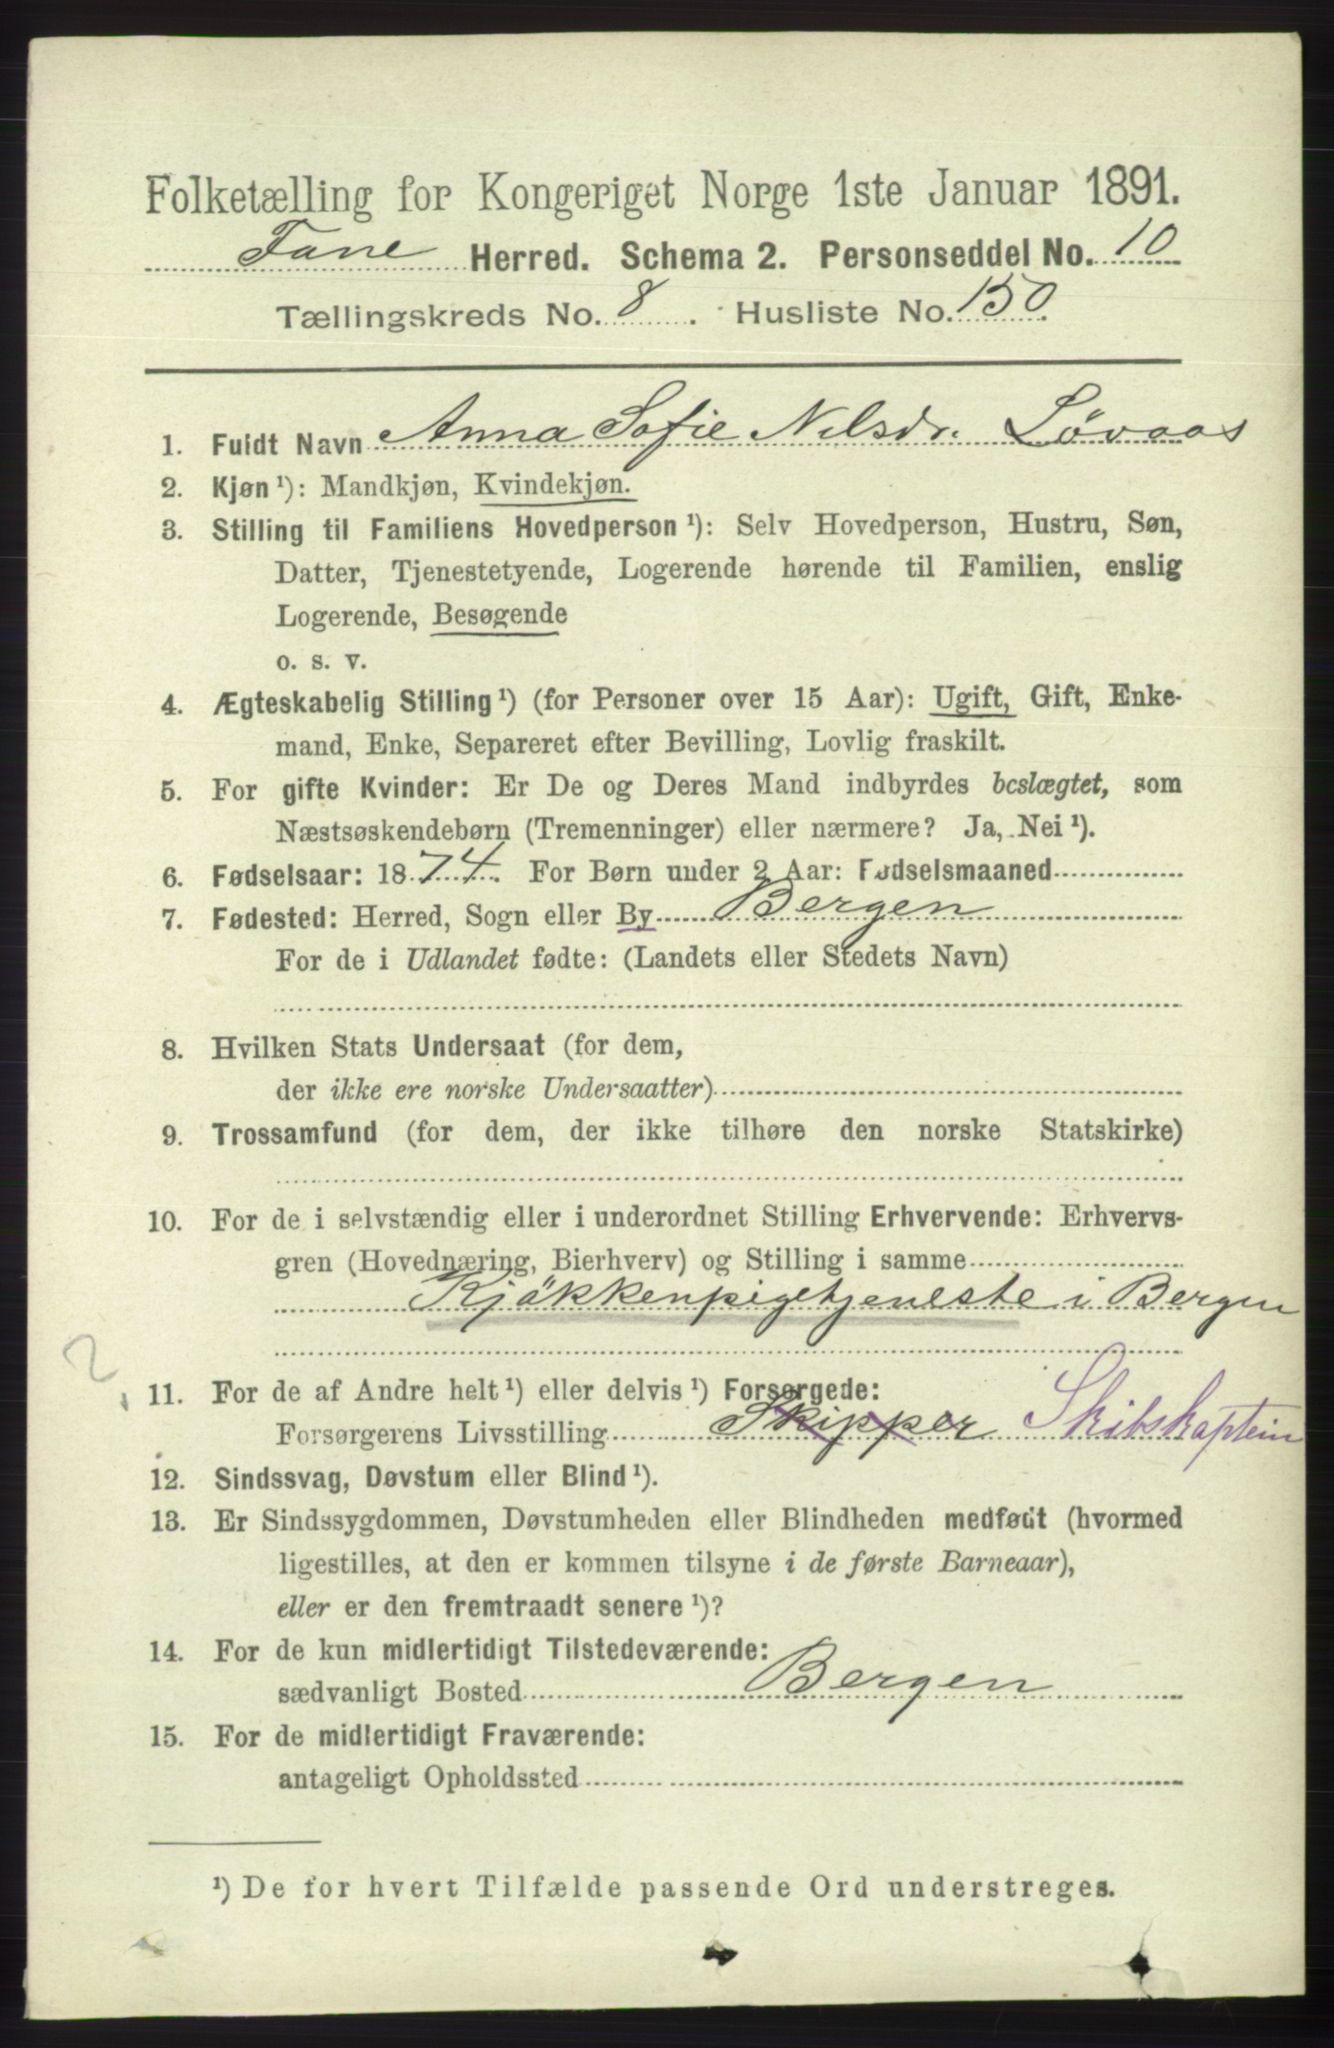 Folketælling for Kongeriget Norge 1ste Januar 1891.
Fane Herred. Schema 2. Personseddel No. 10
Tællingskreds No. 8. Husliste No. 150
1. Fuldt Navn Anna Sofie Nilsdr. Løvaas
2. Kjøn ¹): Mandkjøn, Kvindekjøn.
3. Stilling til Familiens Hovedperson ¹): Selv Hovedperson, Hustru, Søn,
Datter, Tjenestetyende, Logerende hørende til Familien, enslig
Logerende, Besøgende
o. s. v.
4. Ægteskabelig Stilling ¹) (for Personer over 15 Aar): Ugift, Gift, Enke-
mand, Enke, Separeret efter Bevilling, Lovlig fraskilt.
5. For gifte Kvinder: Er De og Deres Mand indbyrdes beslægtet, som
Næstsøskendebørn (Tremenninger) eller nærmere? Ja, Nei ¹).
6. Fødselsaar: 1874. For Børn under 2 Aar: Fødselsmaaned
7. Fødested: Herred, Sogn eller By Bergen
For de i Udlandet fødte: (Landets eller Stedets Navn)
8. Hvilken Stats Undersaat (for dem,
der ikke ere norske Undersaatter)
9. Trossamfund (for dem, der ikke tilhøre den norske Statskirke)
10. For de i selvstændig eller i underordnet Stilling Erhvervende: Erhvervs-
gren (Hovednæring, Bierhverv) og Stilling i samme
Kjökkenpigetjeneste i Bergen
2
11. For de af Andre helt ¹) eller delvis ¹) Forsørgede:
Forsørgerens Livsstilling Skipper Skibskaptein
12. Sindssvag, Døvstum eller Blind ¹).
13. Er Sindssygdommen, Døvstumheden eller Blindheden medfødt (hvormed
ligestilles, at den er kommen tilsyne i de første Barneaar),
eller er den fremtraadt senere ¹)?
14. For de kun midlertidigt Tilstedeværende:
sædvanligt Bosted Bergen
15. For de midlertidigt Fraværende:
antageligt Opholdssted
¹) De for hvert Tilfælde passende Ord understreges.